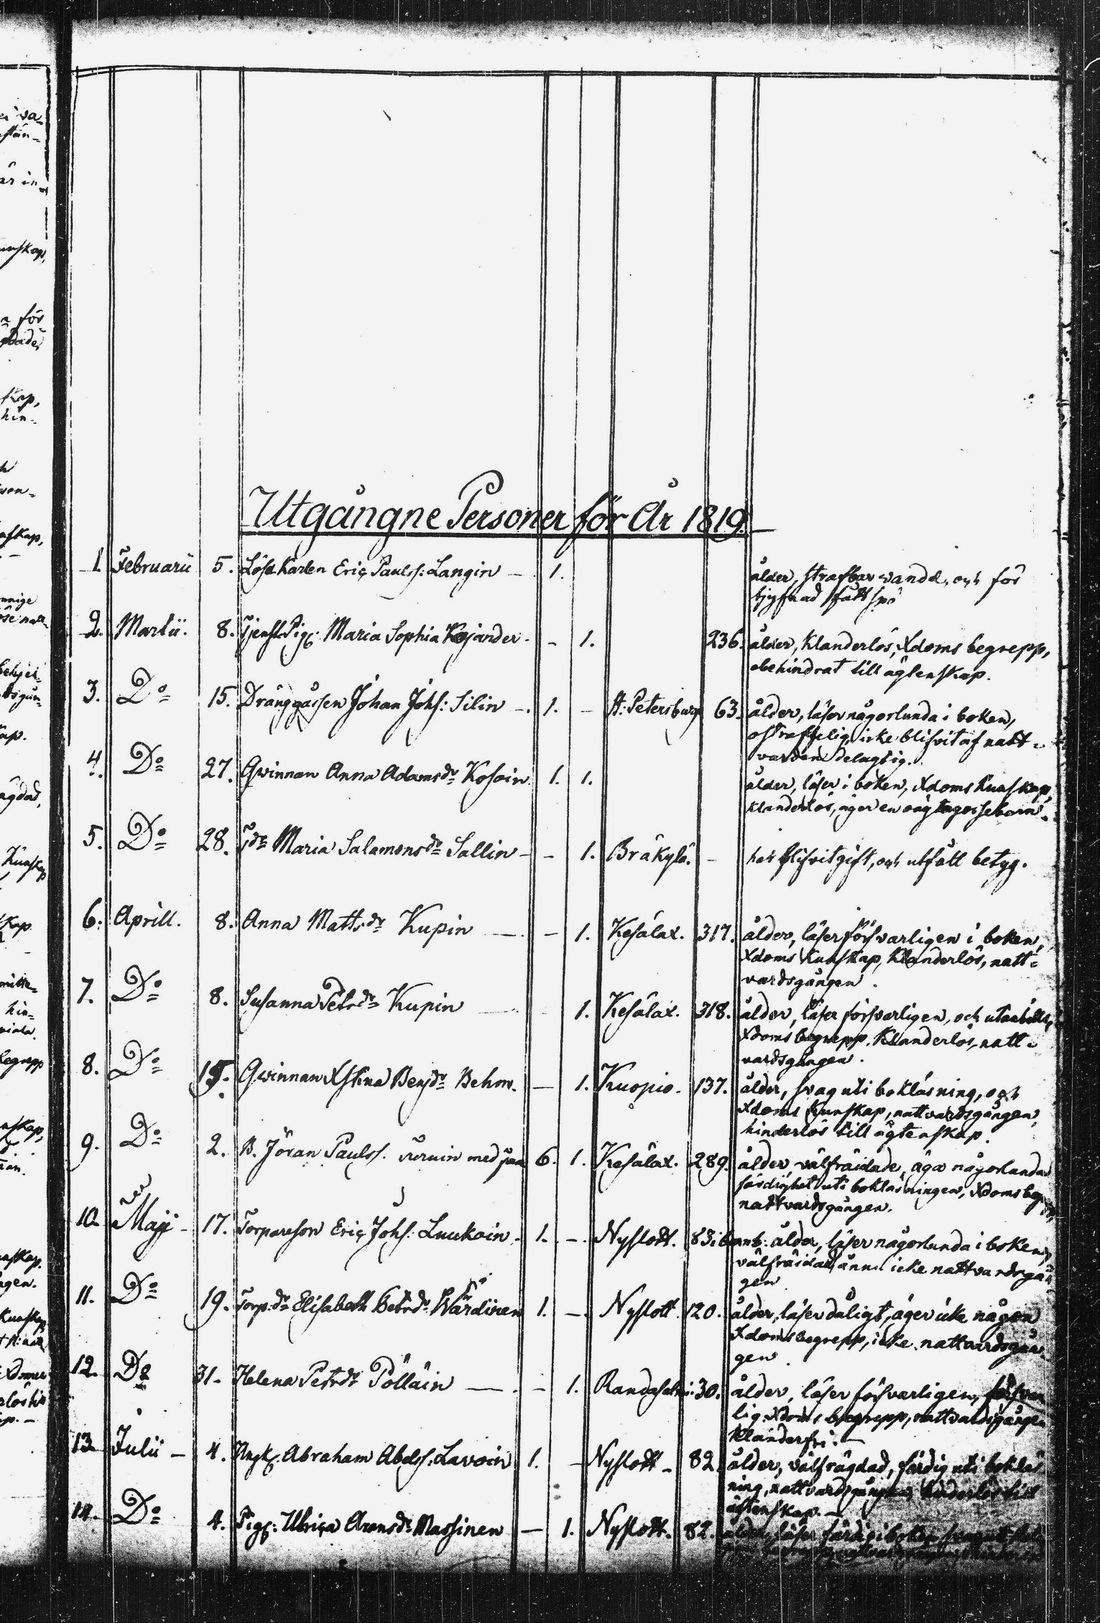 Utgångne Personer för År 1819.
1. Februarii 5. Löse Karlen Eric Paulss: Langin — 1. ålder, straffbar vandel, och för
tjufnad fått spö
2. Martii. 8. Tjenst Pig: Maria Sophia Kojander - - 1. 236. ålder, klanderlös, Xdoms begrepp,
obehindrat till ägtenskap.
3. Do 15. Dränggåssen Johan Johs: Silin - 1. - St: Petersburg 63. ålder, läser någorlunda i boken,
ostraffelig, icke blifvit af natt-
varden delagtig.
4. Do 27. Qvinnan Anna Adamsdr Kosoin 1. 1. ålder, läser i boken, Xdoms Kunskap,
klanderlös, äger en oägta
5. Do 28. Maria Salamonsdr Sallin - - 1. Bräkylä. - har blifvit gift, och utfått betyg.
6. Aprill. 8. Anna Mattsdr Kupin — - 1. Kesälax. 317. ålder, läser försvarligen i boken,
Xdoms Kunskap, Klanderlös, natt-
vardsgången.
7. Do 8. Susanna Petrdr Kupin — 1. Kesälax. 318. ålder, läser försvarligen, och utantill,
Xdoms begrepp, Klanderlös, natt-
vardsgången.
8. Do 15. Qvinnan Xstina Benjdr Behm. — 1. Kuopio. 137. ålder, svag uti bokläsning, och
Xdoms Kunskap, nattvardsgången,
hinderlös till ägtenskap.
9. Do 2. B. Jöran Paulss. med 6. 1. Kesälax. 289. ålder, välfräjdade, äga någorlunda
färdighet uti bokläsningen, Xdoms
nattvardsgången.
10. Maji 17. Torpareson Eric Johs: Luukoin - 1. - Nyslott. 83. ålder, läser någorlunda i boken,
välfräjdad, ännu icke nattvardsgån-
gen
11. Do 19. Torp.dr Elisabeth Petrdr Wärdinen 1. — Nyslott 120. ålder, läser dåligt, äger icke någon
Xdoms begrepp, icke nattvardsgån-
gen
12. Do 31. Helena Petrdr Pölläin — - 1. Randasalmi 30. ålder, läser försvarligen,
Xdoms begrepp, nattvardsgången
Klanderfri. —
13. Julii — 4. Abraham Abelss. Lavoin 1. — Nyslott - 82. ålder, välfrägdad, färdig uti bokläs-
ning, nattvardsgången, hinderlös till
ägtenskap. —
14. Do 4. Pig: Ulrica Aronsdr Massinen — 1. Nyslott. 82. ålder, läser färdigt i boken,